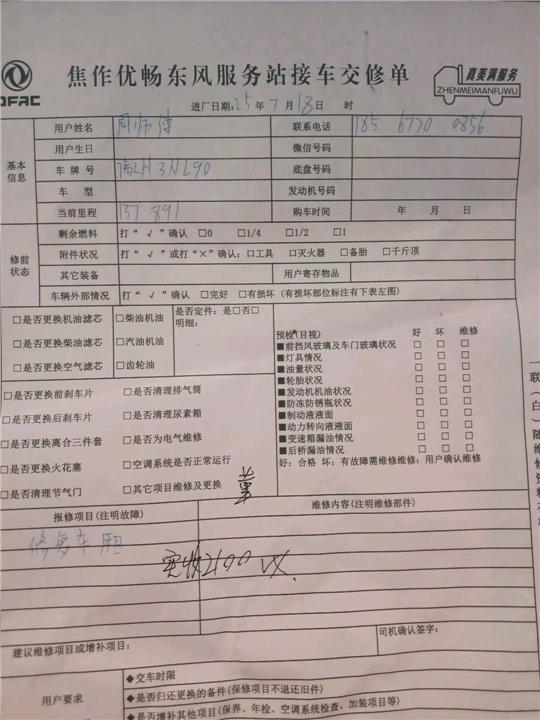 DFAC
焦作优畅东风服务站接车交修单
真美满服务
ZHENMEIMANFUWU
进厂日期:25 年 7 月 18 日 时
基本信息
用户姓名 周师傅 联系电话 185 6770 0856
用户生日 微信号码
车 牌 号 3NL90 底盘号码
车 型 发动机号码
当前里程 137 891 购车时间 年 月 日
修前状态
剩余燃料 打“ √ ”确认 □0 □1/4 □1/2 □1
附件状况 打“ √ ”或打“×”确认：□工具 □灭火器 □备胎 □千斤顶
其它装备 用户寄存物品
车辆外部情况 打“ √ ”确认 □完好 □有损坏 (有损坏部位标注有下表左图)
□是否更换机油滤芯 □柴油机油 是否定件：是□否□
明细：
□是否更换柴油滤芯 □汽油机油
□是否更换空气滤芯 □齿轮油
预检(目视) 好 坏 维修
■前挡风玻璃及车门玻璃状况 □ □ □
■灯具情况 □ □ □
■油量状况 □ □ □
■轮胎状况 □ □ □
■发动机机油状况 □ □ □
■防冻防锈瓶状况 □ □ □
■制动液液面 □ □ □
■动力转向液液面 □ □ □
■变速箱漏油情况 □ □ □
■后桥漏油情况 □ □ □
好：合格 坏：有故障需维修维修：用户确认维修
□是否更换前刹车片 □是否清理排气筒
□是否更换后刹车片 □是否清理尿素箱
□是否更换离合三件套 □是否为电气维修
□是否更换火花塞 □空调系统是否正常运行
□是否清理节气门 □其它项目维修及更换
报修项目(注明故障) 维修内容(注明维修部件)
修复车厢
实收2100 VX.
建议维修项目或增补项目：
司机确认签字：
用户要求
◆交车时限
◆是否归还更换的备件(保修项目不退还旧件)
◆是否增补其他项目(保养、年检、空调系统检查、加装项目等)